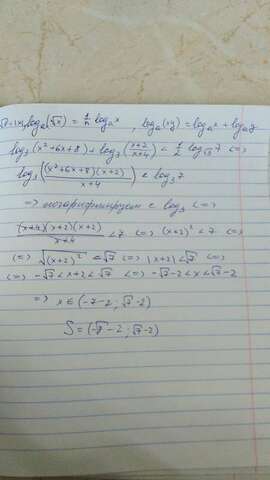 log_a(ⁿ√x) = 1/n log_a x , log_a(xy) = log_a x + log_a y
log_3(x²+6x+8) + log_3((x+2)/(x+4)) < 1/2 log_√3 7 <=>
log_3((x²+6x+8)(x+2)/(x+4)) < log_3 7
=> логарифмируем с log_3 <=>
(x+4)(x+2)(x+2)/(x+4) < 7 <=> (x+2)² < 7 <=>
<=> √(x+2)² < √7 <=> |x+2| < √7 <=>
<=> -√7 < x+2 < √7 <=> -√7-2 < x < √7-2
=> x∈(-7-2 ; √7-2)
S = (-√7-2 ; √7-2)